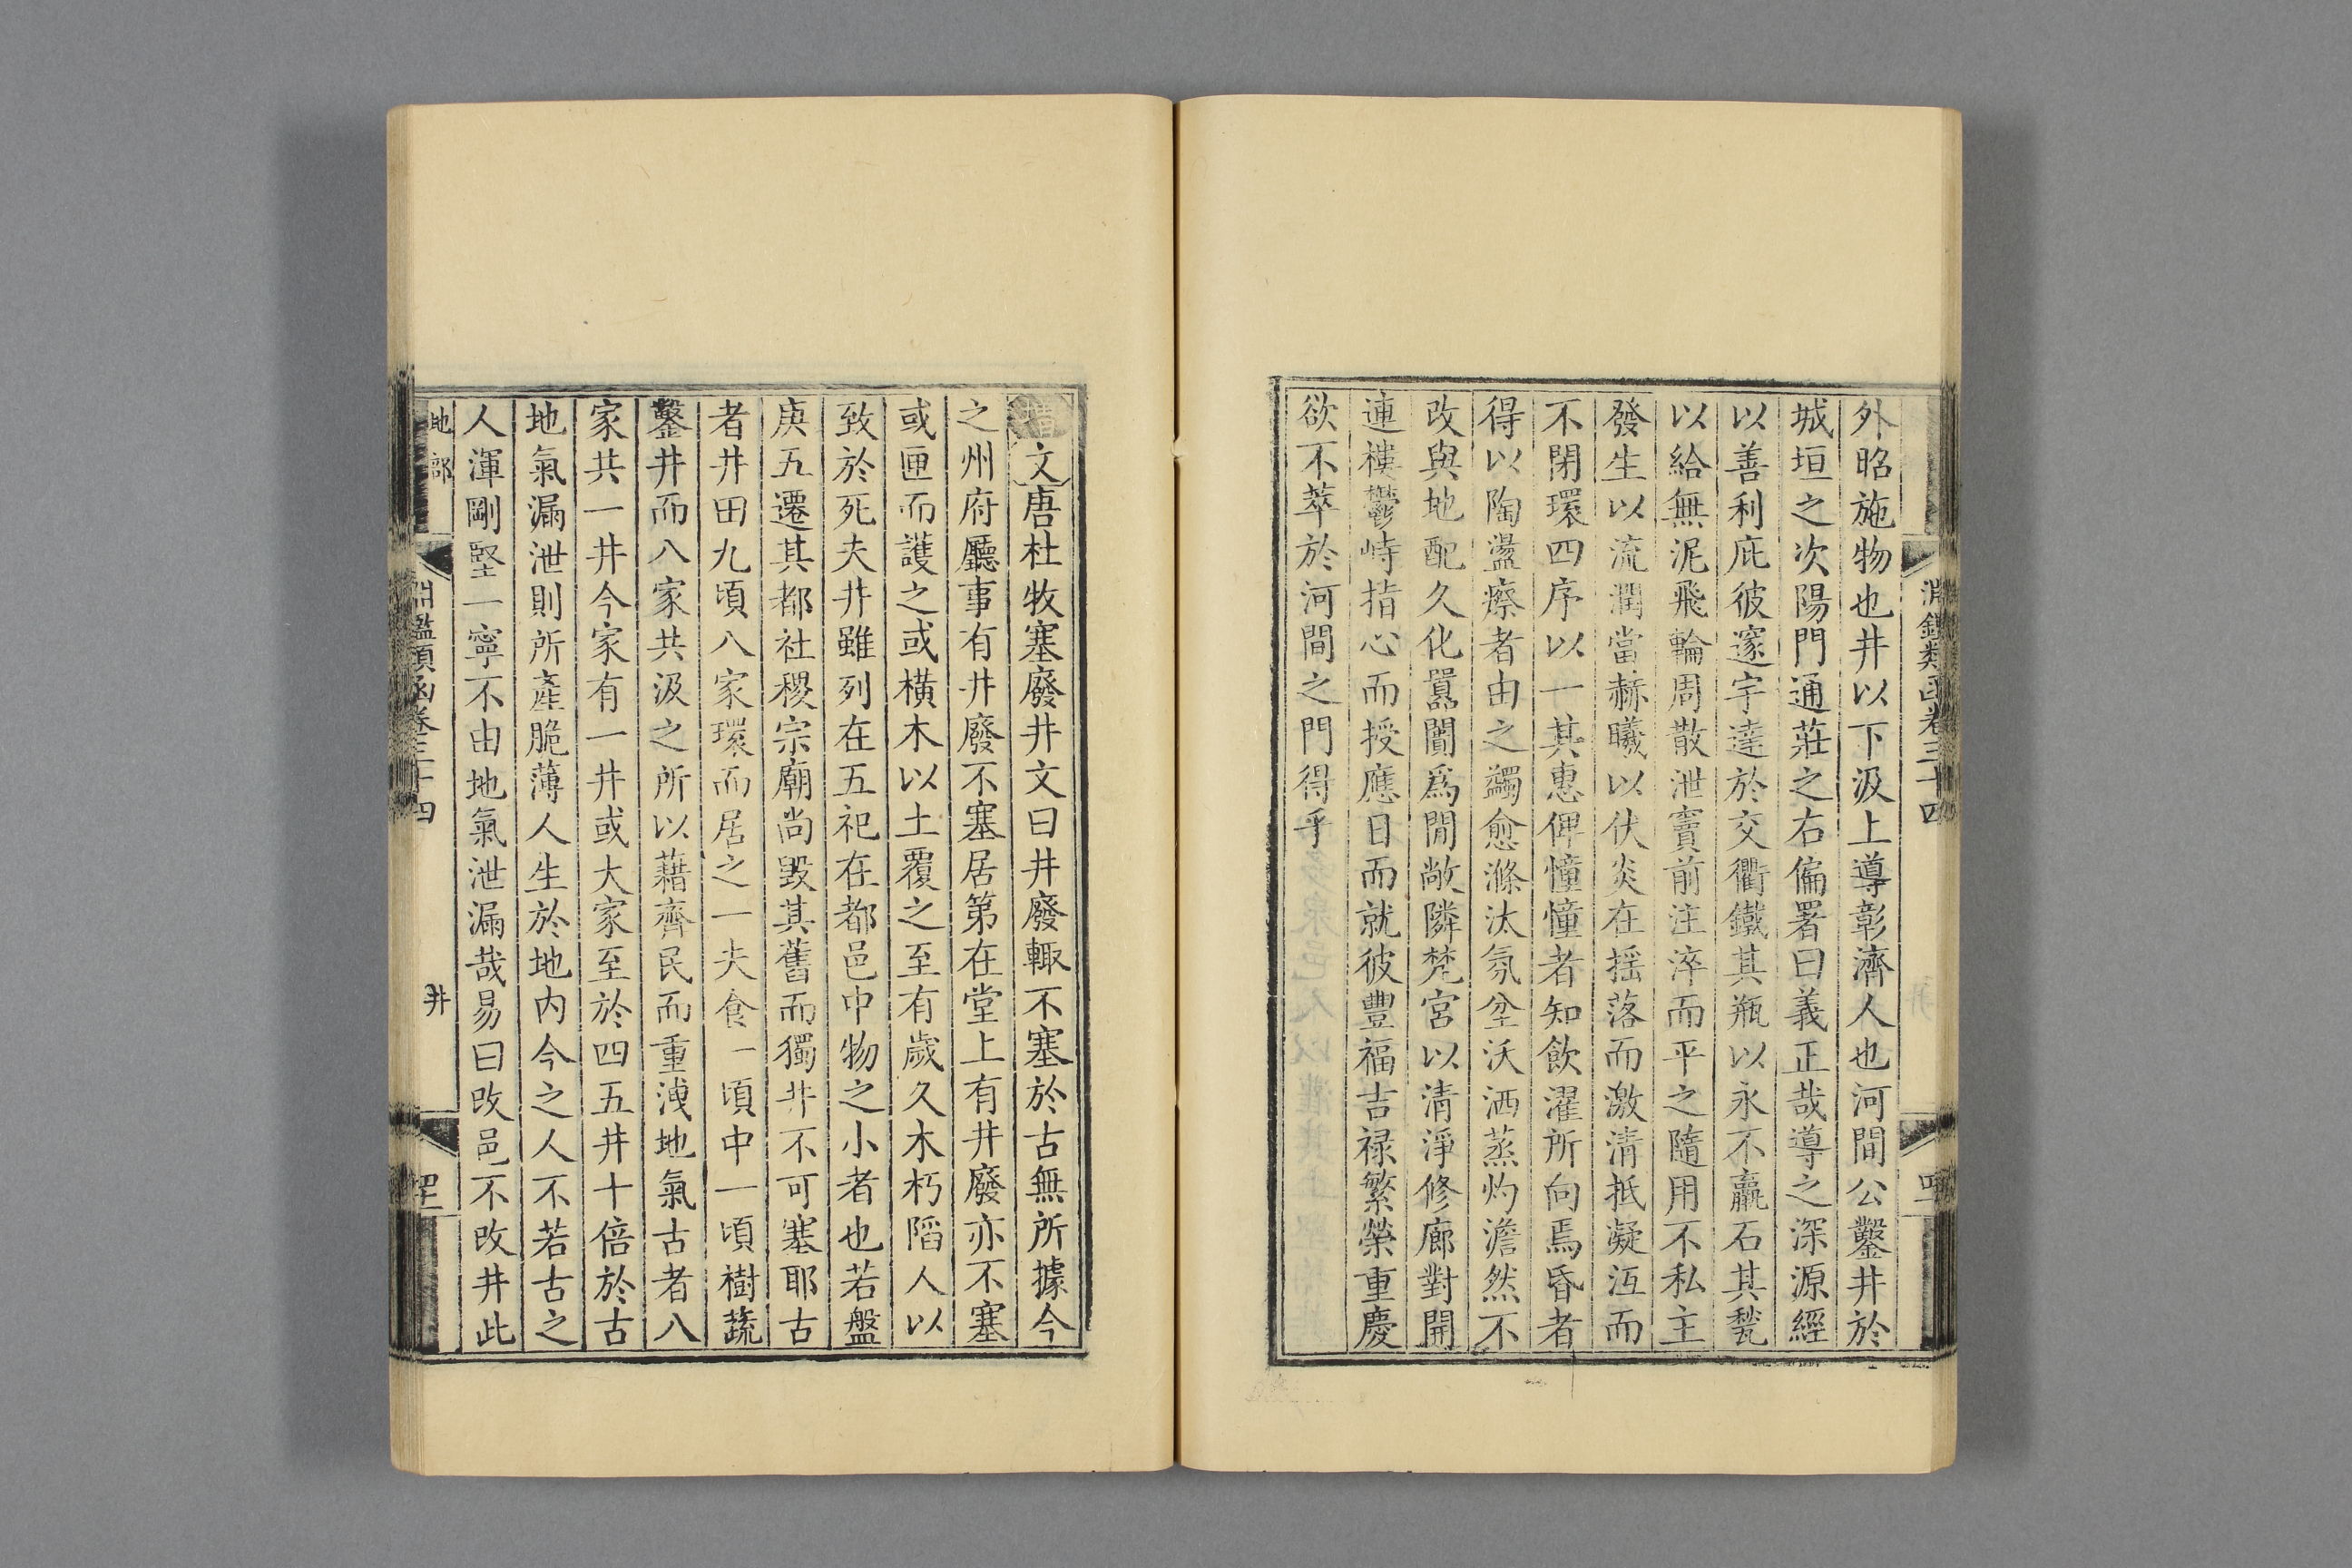 淵鑑類函卷三十四
外昭施物也井以下汲上導彰濟人也河間公鑿井於
城垣之次陽門通莊之右偏署曰義正哉導之深源經
以善利庇彼邃宇達於交衢鐵其瓶以永不羸石其甃
以給無泥飛輪周散泄竇前注淬而平之隨用不私主
發生以流潤當赫曦以伏炎在搖落而激清抵凝沍而
不閉環四序以一其惠俾憧憧者知飲濯所向焉昏者
得以陶盪瘵者由之蠲愈滌汰氛坌沃洒蒸灼澹然不
改與地配久化囂闠爲閒敞隣梵宮以清淨修廊對開
連樓鬱峙指心而授應日而就彼豐福吉祿繁榮重慶
欲不萃於河間之門得乎
文唐杜牧塞廢井文曰井廢輙不塞於古無所據今
之州府廳事有井廢不塞居第在堂上有井廢亦不塞
或匣而護之或橫木以土覆之至有歲久木朽陷人以
致於死夫井雖列在五祀在都邑中物之小者也若盤
庚五遷其都社稷宗廟尚毀其舊而獨井不可塞耶古
者井田九頃八家環而居之一夫食一頃中一頃樹蔬
鑿井而八家共汲之所以藉齊民而重洩地氣古者八
家共一井今家有一井或大家至於四五井十倍於古
地氣漏泄則所產脆薄人生於地内今之人不若古之
人渾剛堅一寧不由地氣泄漏哉易曰改邑不改井此
地部
淵鑑類函卷三十四
井